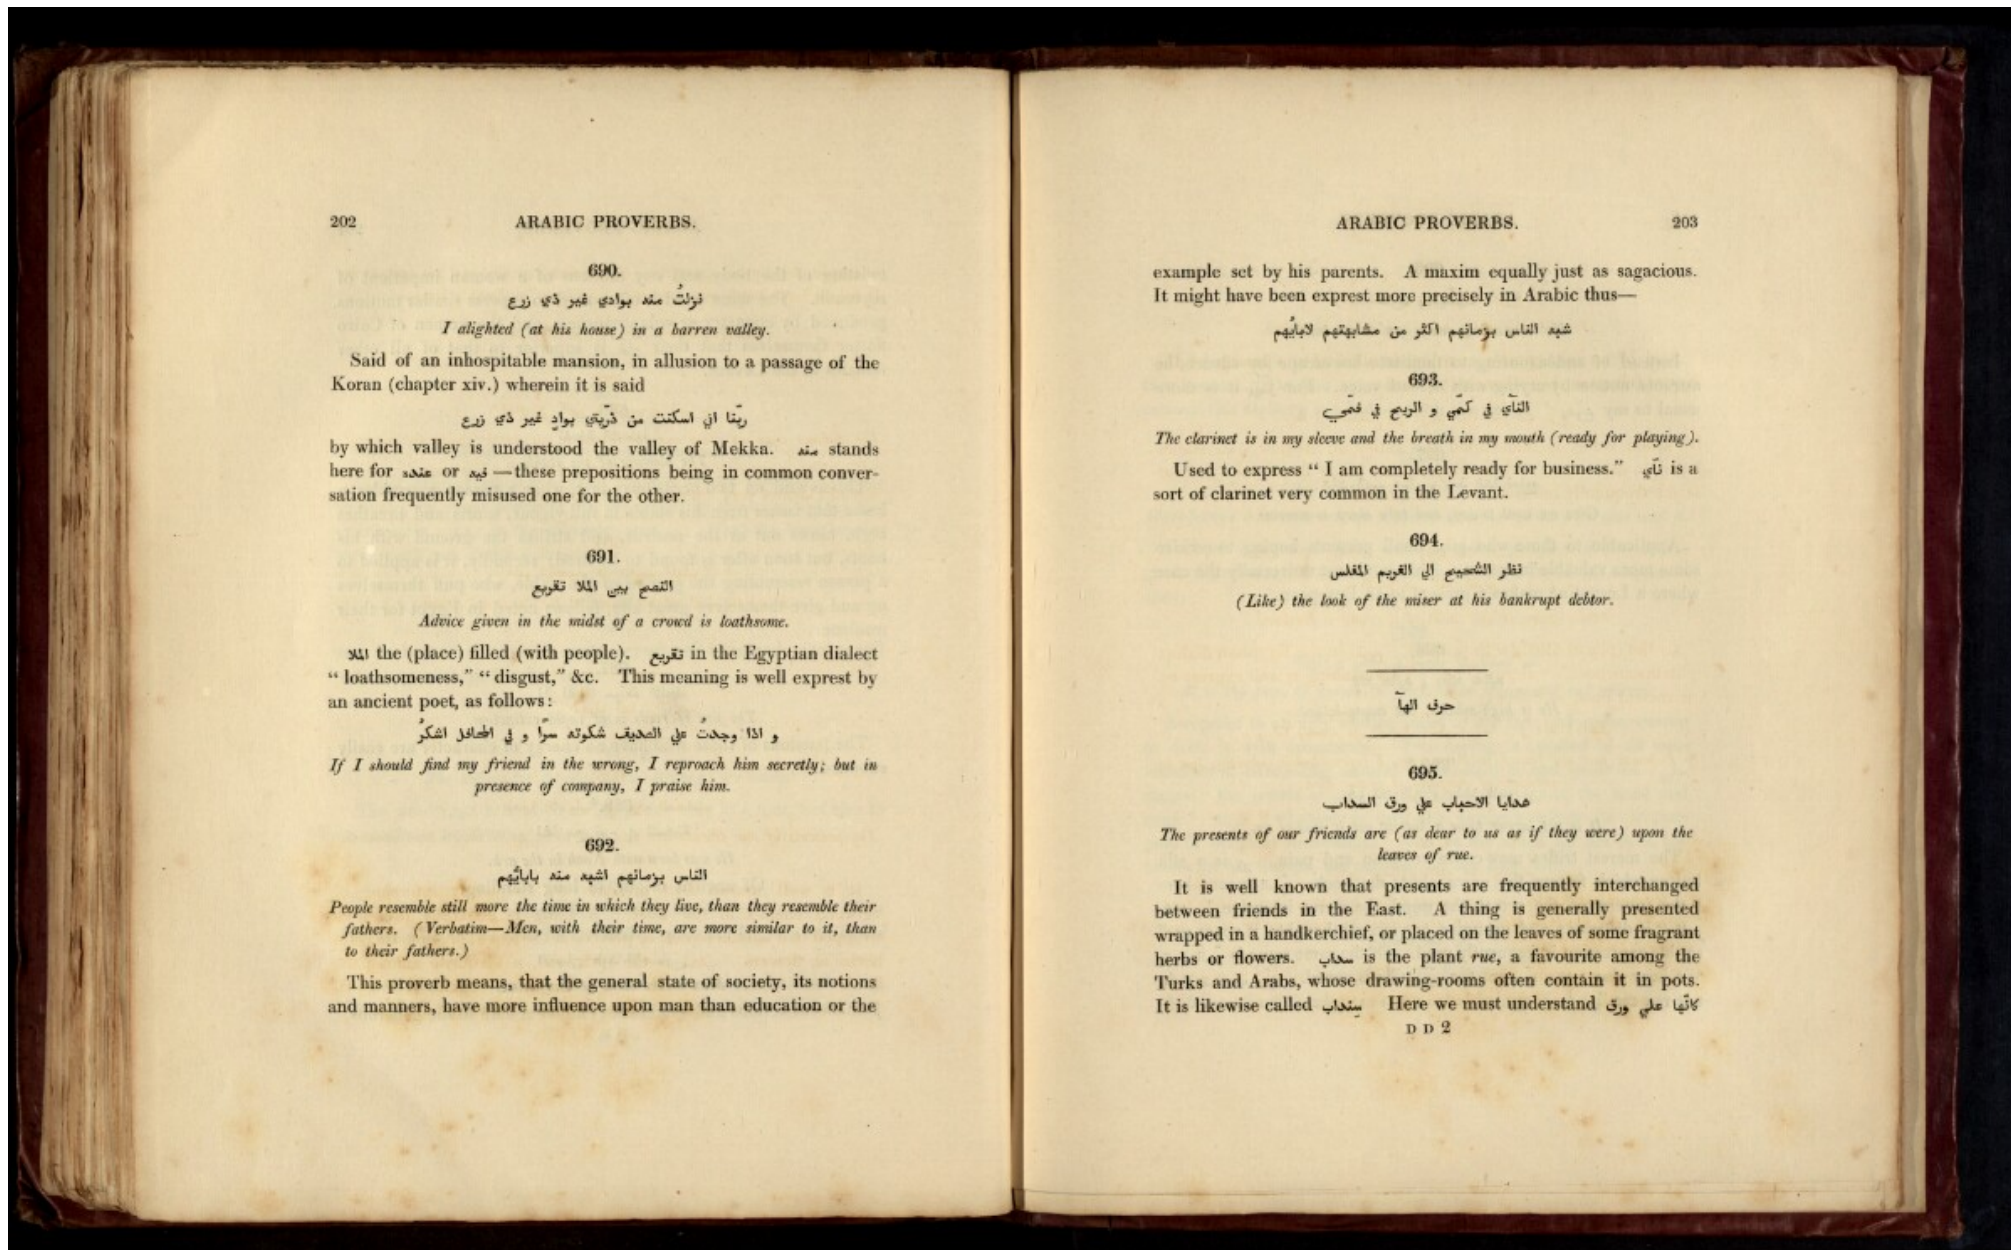 202 ARABIC PROVERBS.
690.
نزلتُ منه بوادي غير ذي زرع
I alighted (at his house) in a barren valley.
Said of an inhospitable mansion, in allusion to a passage of the
Koran (chapter xiv.) wherein it is said
ربّنا اني اسكنت من ذرّيتي بوادٍ غير ذي زرع
by which valley is understood the valley of Mekka. منه stands
here for عنده or فيه—these prepositions being in common conver-
sation frequently misused one for the other.
691.
النصح بين الملا تقريع
Advice given in the midst of a crowd is loathsome.
الملا the (place) filled (with people). تقريع in the Egyptian dialect
“ loathsomeness,” “ disgust,” &c. This meaning is well exprest by
an ancient poet, as follows:
و اذا وجدتُ علي الصديف شكوته سرّا و في المحافل اشكرُ
If I should find my friend in the wrong, I reproach him secretly; but in
presence of company, I praise him.
692.
الناس بزمانهم اشبه منه بابايُهم
People resemble still more the time in which they live, than they resemble their
fathers. (Verbatim—Men, with their time, are more similar to it, than
to their fathers.)
This proverb means, that the general state of society, its notions
and manners, have more influence upon man than education or the
ARABIC PROVERBS. 203
example set by his parents. A maxim equally just as sagacious.
It might have been exprest more precisely in Arabic thus—
شبه الناس بزمانهم اكثر من مشابهتهم لابايُهم
693.
النآي في كمّي و الريح في فمّي
The clarinet is in my sleeve and the breath in my mouth (ready for playing).
Used to express “ I am completely ready for business.” نآي is a
sort of clarinet very common in the Levant.
694.
نظر الشحيح الي الغريم المفلس
(Like) the look of the miser at his bankrupt debtor.
حرف الهآ
695.
هدايا الاحباب علي ورق السداب
The presents of our friends are (as dear to us as if they were) upon the
leaves of rue.
It is well known that presents are frequently interchanged
between friends in the East. A thing is generally presented
wrapped in a handkerchief, or placed on the leaves of some fragrant
herbs or flowers. سداب is the plant rue, a favourite among the
Turks and Arabs, whose drawing-rooms often contain it in pots.
It is likewise called سِنداب Here we must understand كانّها علي ورق
D D 2